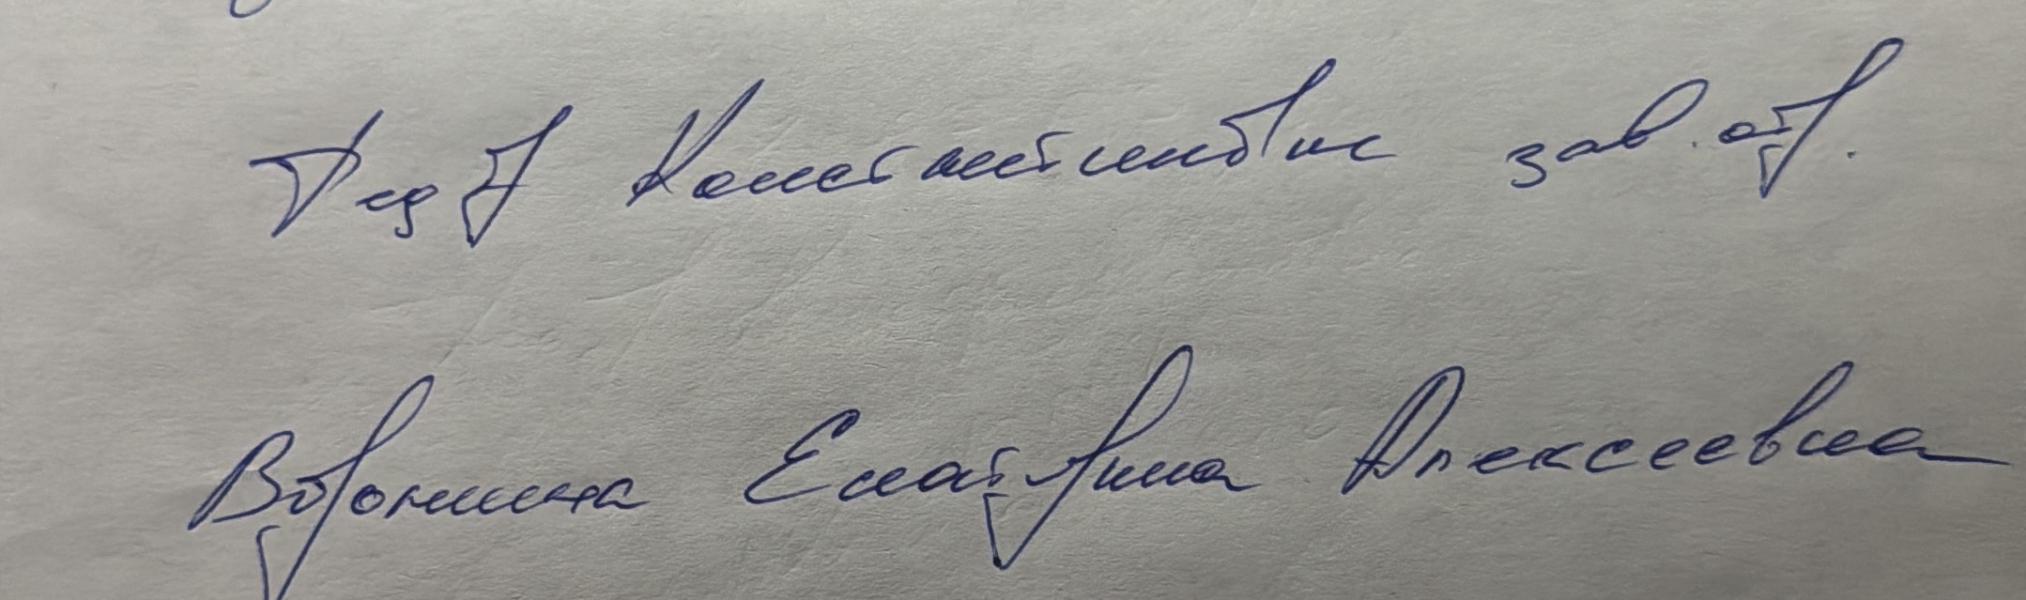 Константинович зав. отд.
Воронина Екатерина Алексеевна